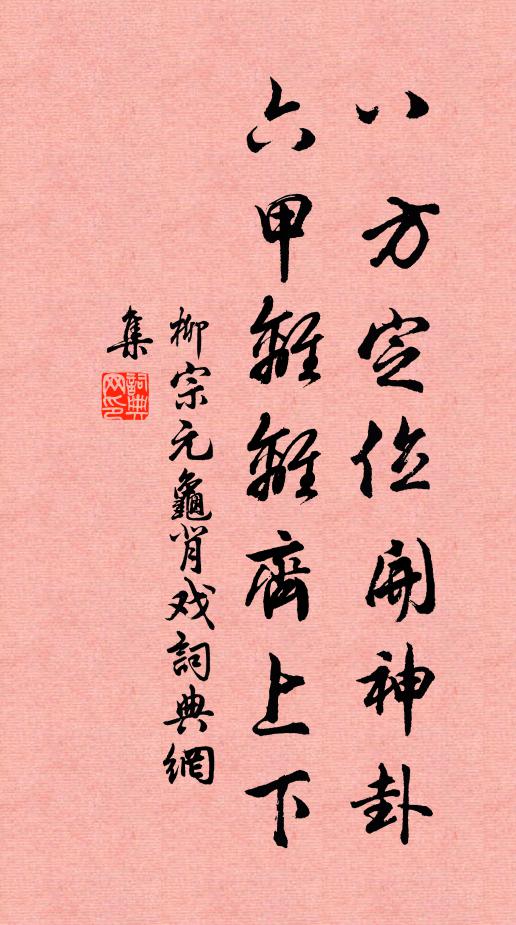 八方定位開神卦
六甲離離齊上下
柳宗元龜背戏詞典網
集
詞典网印